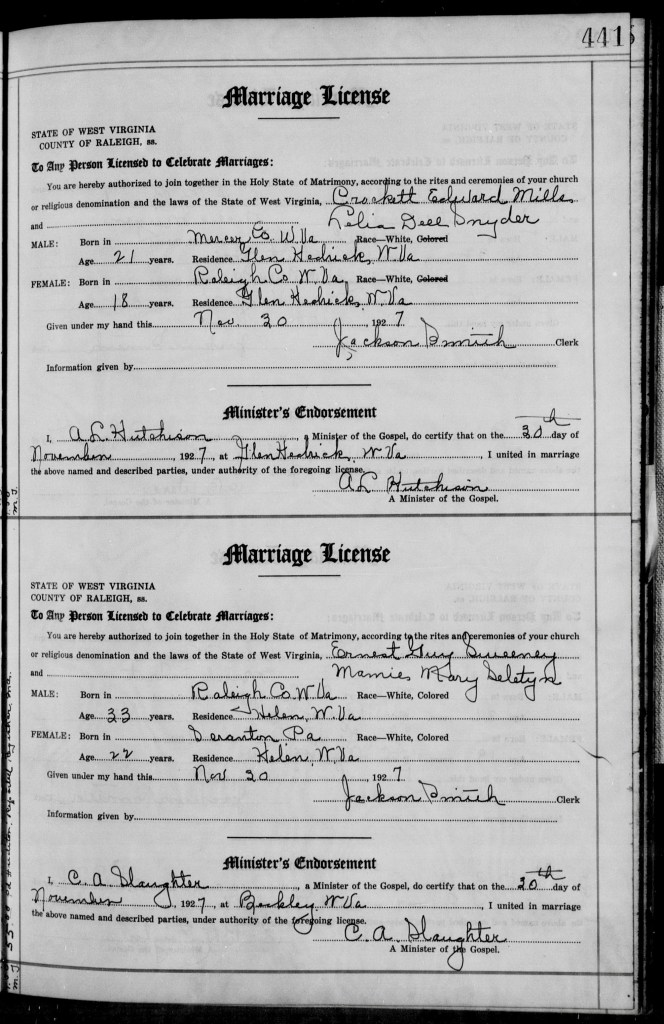 441
Marriage License
STATE OF WEST VIRGINIA
COUNTY OF RALEIGH, ss.
To Any Person Licensed to Celebrate Marriages:
You are hereby authorized to join together in the Holy State of Matrimony, according to the rites and ceremonies of your church
or religious denomination and the laws of the State of West Virginia, Crockett Edward Mills
and Lelia Dell Snyder
MALE: Born in Mercer Co. W. Va Race—White, Colored
Age 21 years. Residence Glen Hedrick, W. Va
FEMALE: Born in Raleigh Co. W. Va Race—White, Colored
Age 18 years. Residence Glen Hedrick, W. Va
Given under my hand this Nov. 30, 1927
Jackson Smith Clerk
Information given by
Minister's Endorsement
I, A. L. Hutchison, a Minister of the Gospel, do certify that on the 30th day of
November, 1927, at Glen Hedrick, W. Va, I united in marriage
the above named and described parties, under authority of the foregoing license.
A. L. Hutchison
A Minister of the Gospel.
Marriage License
STATE OF WEST VIRGINIA
COUNTY OF RALEIGH, ss.
To Any Person Licensed to Celebrate Marriages:
You are hereby authorized to join together in the Holy State of Matrimony, according to the rites and ceremonies of your church
or religious denomination and the laws of the State of West Virginia, Ernest Guy Sweeney
and Mamies Mary
MALE: Born in Raleigh Co. W. Va Race—White, Colored
Age 33 years. Residence Helen, W. Va
FEMALE: Born in Scranton Pa Race—White, Colored
Age 22 years. Residence Helen, W. Va
Given under my hand this Nov 30, 1927
Jackson Smith Clerk
Information given by
Minister's Endorsement
I, C. A. Slaughter, a Minister of the Gospel, do certify that on the 30th day of
November, 1927, at Beckley W. Va, I united in marriage
the above named and described parties, under authority of the foregoing license.
C. A. Slaughter
A Minister of the Gospel.